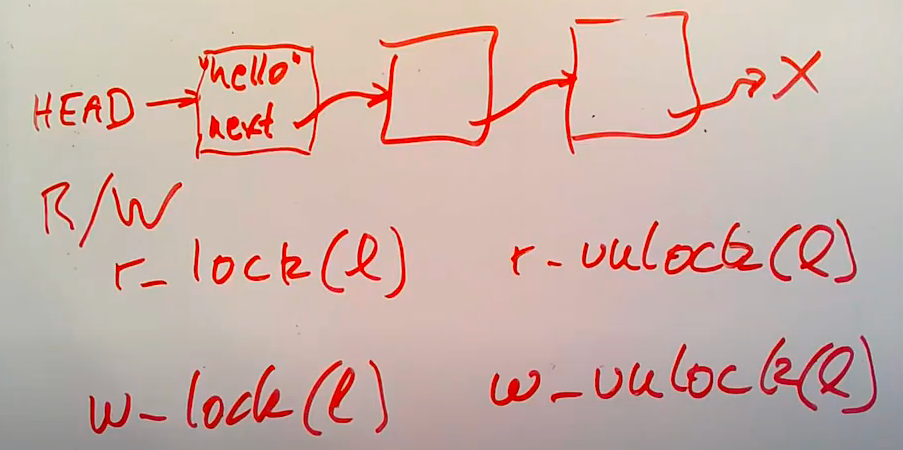 HEAD "hello" X
next
R/W
r_lock(l) r_unlock(l)
w_lock(l) w_unlock(l)